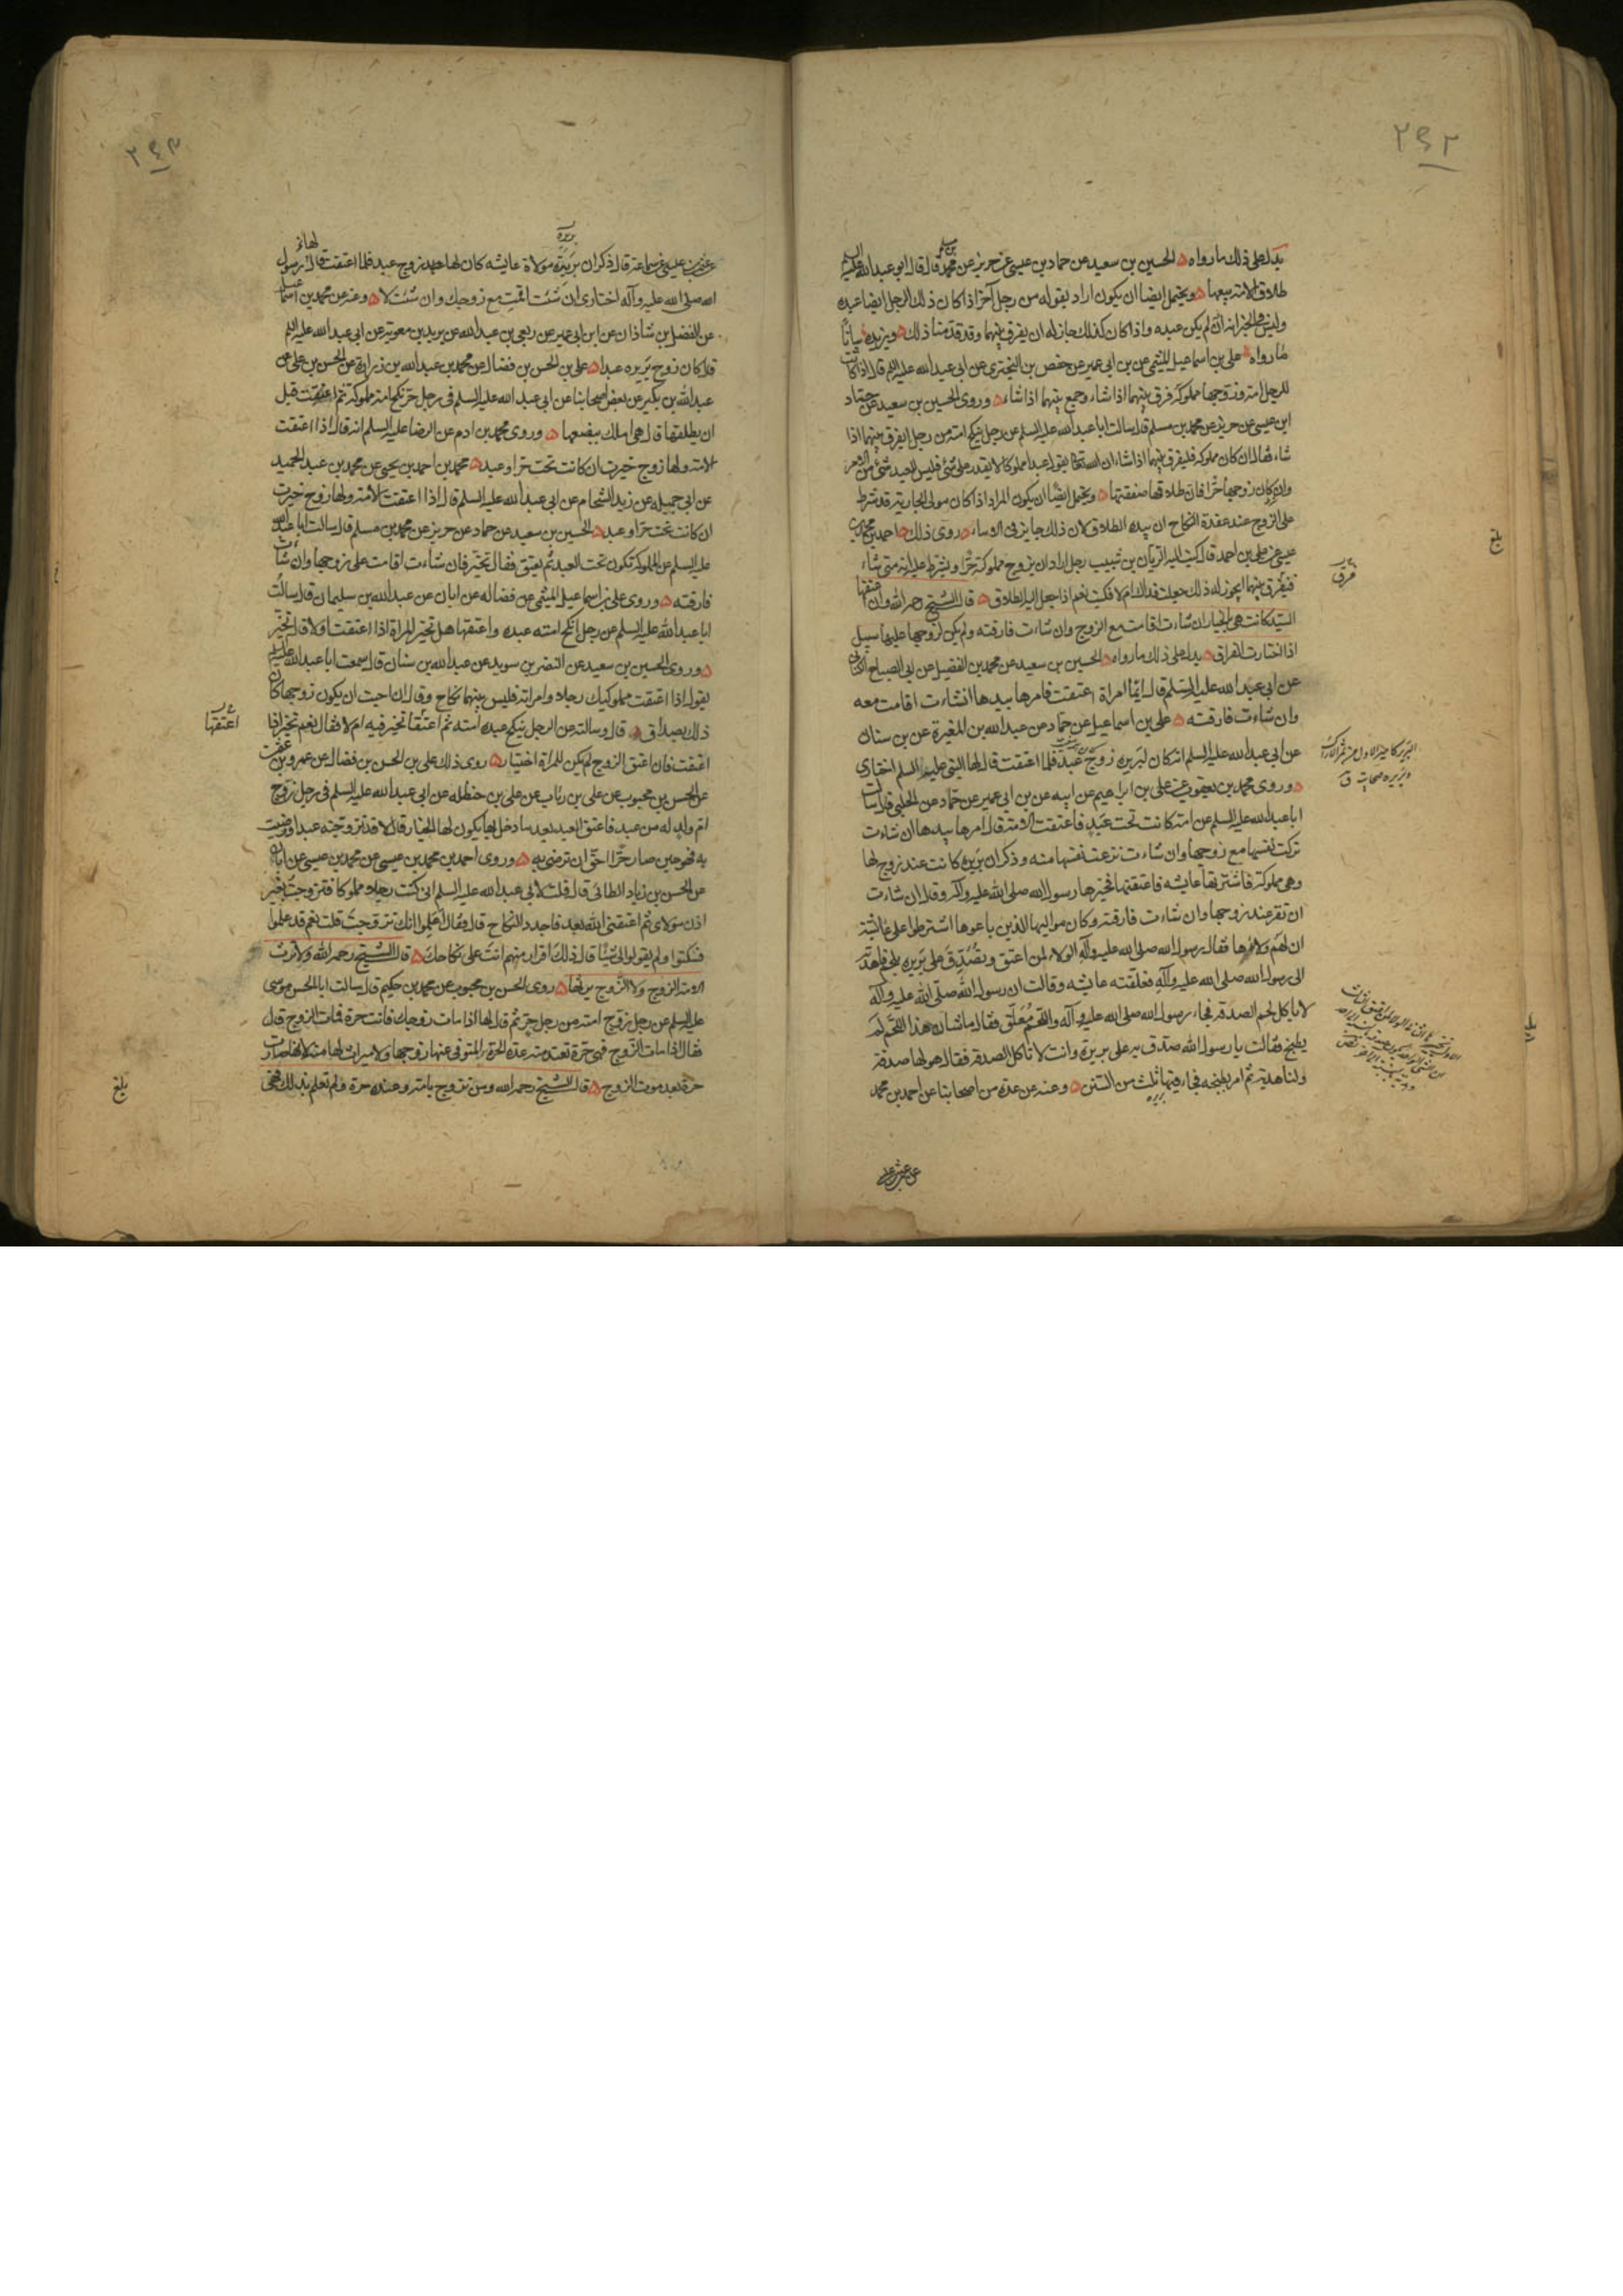 ۲۹۲
يدل على ذلك ما رواه الحسين بن سعيد عن حماد بن عيسى عن حريز عن محمد بن مسلم قال قال ابو عبد الله عليه السلم
طلاق الامة بيعها ويحتمل ايضا ان يكون اراد بقوله من رجل آخر اذا كان ذلك الرجل ايضا عبده
وليس في الخبر انه لم يكن عبده واذا كان كذلك جاز له ان يفرق بينهما وقد قدمنا ذلك ويزيده بيانا
ما رواه علي بن اسماعيل الميثمي عن بن ابي عمير عن حفص بن البختري عن ابي عبد الله عليه السلم قال اذا كانت
للرجل امة وزوجها مملوكه فرق بينهما اذا شاء وجمع بينهما اذا شاء وروى الحسين بن سعيد عن حماد
ابن عيسى عن حريز عن محمد بن مسلم قال سالت ابا عبد الله عليه السلم عن رجل ينكح امته من رجل ايفرق بينهما اذا
شاء فقال ان كان مملوكه فليفرق بينهما اذا شاء ان الله تعالى يقول عبدا مملوكا لا يقدر على شئ فليس للعبد شئ من الامر
وان كان زوجها حرا فان طلاقها صفقتها ويحتمل ايضا ان يكون المراد اذا كان مولى الجارية قد شرط
على الزوج عند عقدة النكاح ان بيده الطلاق لان ذلك جايز في الاماء روى ذلك احمد بن محمد بن
عيسى عن علي بن احمد قال كتب اليه الريان بن شبيب رجل اراد ان يزوج مملوكته حرا ويشترط عليه انه متى شاء
فيفرق بينهما ايجوز له ذلك جعلت فداك ام لا فكتب نعم اذا جعل اليه الطلاق قال الشيخ رحمه الله وان اعتقها
السيد كانت هي بالخيار ان شاءت اقامت مع الزوج وان شاءت فارقته ولم يكن لزوجها عليها سبيل
اذا اختارت الفراق يدل على ذلك ما رواه الحسين بن سعيد عن محمد بن الفضيل عن ابي الصباح الكناني
عن ابي عبد الله عليه السلم قال ايما امراة اعتقت فامرها بيدها ان شاءت اقامت معه
وان شاءت فارقته علي بن اسماعيل عن حماد عن عبد الله بن المغيرة عن بن سنان
عن ابي عبد الله عليه السلم انه كان لبريره زوج عبد فلما اعتقت قال لها النبي عليه السلم اختاري
وروى محمد بن يعقوب عن علي بن ابراهيم عن ابيه عن بن ابي عمير عن حماد عن الحلبي قال سالت
ابا عبد الله عليه السلم عن امة كانت تحت عبد فاعتقت الامة قال امرها بيدها ان شاءت
تركت نفسها مع زوجها وان شاءت نزعت نفسها منه وذكر ان بريره كانت عند زوج لها
وهي مملوكة فاشترتها عايشه فاعتقتها فخيرها رسول الله صلى الله عليه وآله وقال ان شاءت
ان تقر عند زوجها وان شاءت فارقته وكان مواليها الذين باعوها اشترطوا على عايشة
ان لهم ولاءها فقال رسول الله صلى الله عليه وآله الولاء لمن اعتق وتصدق على بريره بلحم فاهدته
الى رسول الله صلى الله عليه وآله فعلقته عايشه وقالت ان رسول الله صلى الله عليه وآله
لا ياكل لحم الصدقة فجاء رسول الله صلى الله عليه وآله واللحم معلق فقال ما شان هذا اللحم لم
يطبخ فقالت يا رسول الله صدق به على بريرة وانت لا تاكل الصدقة فقال هو لها صدقة
ولنا هدية ثم امر بطبخه فجاء فيها ثلث من السنن وعنه عن عدة من اصحابنا عن احمد بن محمد
بلغ
۲۹۳
عن عثمن بن عيسى عن سماعة قال ذكر ان بريرة مولاة عايشه كان لها زوج عبد فلما اعتقت قال لها رسول
الله صلى الله عليه وآله اختاري ان شئت اقمت مع زوجك وان شئت لا وعنه عن محمد بن اسماعيل
عن الفضل بن شاذان عن ابن ابي عمير عن ربعي بن عبد الله عن بريد بن معوية عن ابي عبد الله عليه السلم
قال كان زوج بريره عبدا علي بن الحسن بن فضال عن محمد بن عبد الله بن زرارة عن الحسن بن علي عن
عبد الله بن بكير عن بعض اصحابنا عن ابي عبد الله عليه السلم في رجل حر نكح امة مملوكة ثم اعتقت قبل
ان يطلقها قال هي املك ببضعها وروى محمد بن ادم عن الرضا عليه السلم انه قال اذا اعتقت
الامة ولها زوج خيرت ان كانت تحت حر او عبد محمد بن احمد بن يحيى عن محمد بن عبد الحميد
عن ابي جميله عن زيد الشحام عن ابي عبد الله عليه السلم قال اذا اعتقت الامة ولها زوج خيرت
ان كانت تحت حر او عبد الحسين بن سعيد عن حماد عن حريز عن محمد بن مسلم قال سالت ابا عبد الله
عليه السلم عن المملوكة تكون تحت العبد ثم يعتق فقال تخير فان شاءت اقامت على زوجها وان شاءت
فارقته وروى علي بن اسماعيل الميثمي عن فضاله عن ابان عن عبد الله بن سليمان قال سالت
ابا عبد الله عليه السلم عن رجل انكح امته عبده واعتقها هل تخير المراة اذا اعتقت اولا قال تخير
وروى الحسين بن سعيد عن النضر بن سويد عن عبد الله بن سنان قال سمعت ابا عبد الله عليه السلم
يقول اذا اعتقت مملوكيك رجلا وامراته فليس بينهما نكاح وقال ان احبت ان يكون زوجها كان
ذلك بصداق قال وسالته عن الرجل ينكح عبده امته ثم اعتقها تخير فيه ام لا فقال نعم تخير اذا
اعتقت فان اعتق الزوج لم يكن للمراة اختيار روى ذلك علي بن الحسن بن فضال عن عمرو بن عثمن
عن الحسن بن محبوب عن علي بن رئاب عن علي بن حنظله عن ابي عبد الله عليه السلم في رجل زوج
ام ولد له من عبد فاعتق العبد بعد ما دخل بها يكون لها الخيار قال لا قد تزوجته عبدا ورضيت
به فهو حين صار حرا احق ان ترضى به وروى احمد بن محمد بن عيسى عن محمد بن عيسى عن ابان
عن الحسن بن زياد الطائي قال قلت لابي عبد الله عليه السلم اني كنت رجلا مملوكا فتزوجت بغير
اذن مولاي ثم اعتقني الله بعد فاجدد النكاح قال فقال اعلموا انك تزوجت قلت نعم قد علموا
فسكتوا ولم يقولوا لي شيئا قال ذلك اقرار منهم انت على نكاحك قال الشيخ رحمه الله ولا ترث
الامة الزوج ولا الزوج يرثها روى الحسن بن محبوب عن محمد بن حكيم قال سالت ابا الحسن موسى
عليه السلم عن رجل زوج امته من رجل حر ثم قال لها اذا مات زوجك فانت حرة فمات الزوج قال
فقال اذا مات الزوج فهي حرة تعتد منه عدة الحرة المتوفى عنها زوجها ولا ميراث لها منه لانها صارت
حرة بعد موت الزوج قال الشيخ رحمه الله ومن تزوج بامة وعنده حرة ولم تعلم بذلك فهي
اعتقها
بلغ